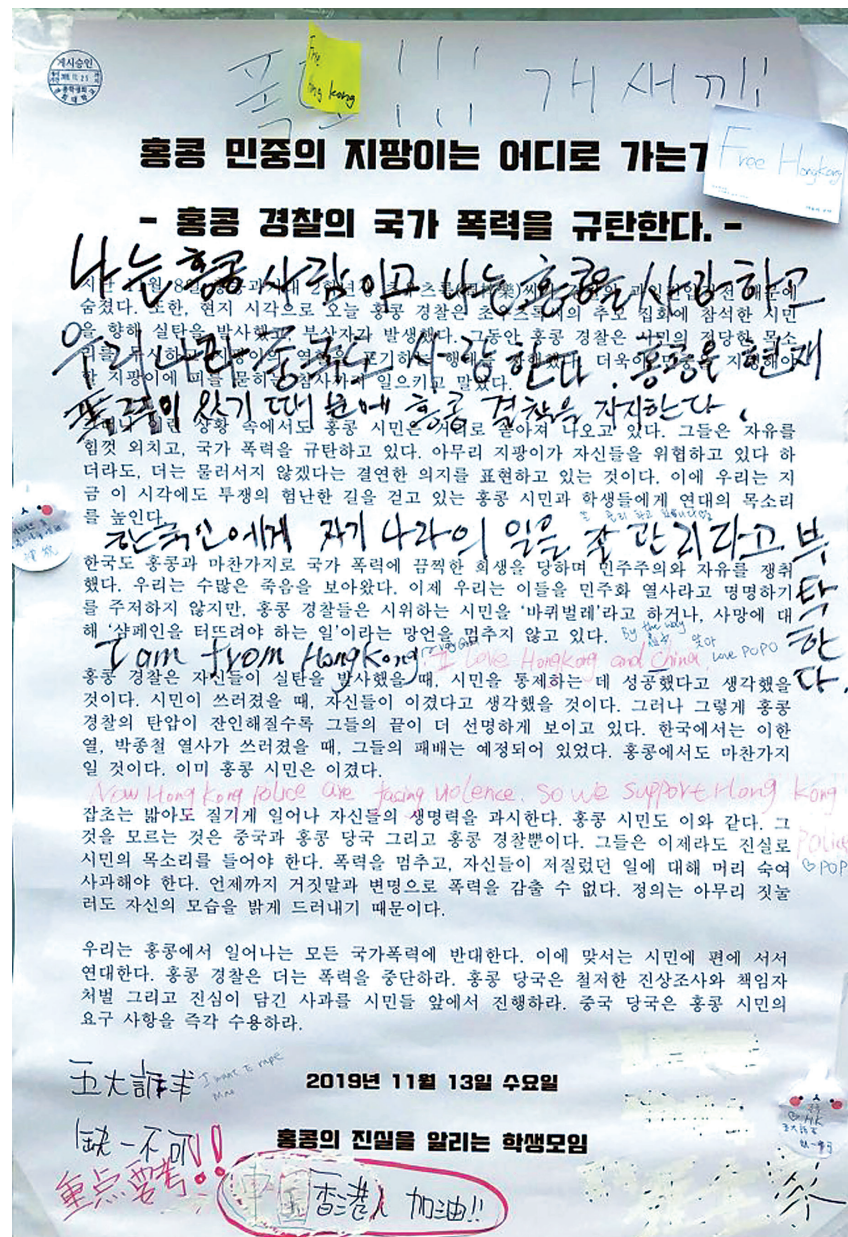 게시승인
폭 !!! 개새끼!!
Free
Hong kong
홍콩 민중의 지팡이는 어디로 가는
Free HongKong
- 홍콩 경찰의 국가 폭력을 규탄한다. -
나는 홍콩 사람이고 나는 홍콩을 사랑하고
숨졌다. 또한, 현지 시각으로 오늘 홍콩 경찰은 추모 집회에 참석한 시민
을 향해 실탄을 발사했고 부상자가 발생했다. 그동안 홍콩 경찰은 시민의 정당한 목소
우리나라 중국도 사랑한다. 홍콩은 현재
한 지팡이에 피를 묻히는 참사까지 일으키고 말았다.
폭도들이 있기 때문에 홍콩 경찰을 지지한다.
상황 속에서도 홍콩 시민은 거리로 쏟아져 나오고 있다. 그들은 자유를
힘껏 외치고, 국가 폭력을 규탄하고 있다. 아무리 지팡이가 자신들을 위협하고 있다 하
더라도, 더는 물러서지 않겠다는 결연한 의지를 표현하고 있는 것이다. 이에 우리는 지
금 이 시각에도 투쟁의 험난한 길을 걷고 있는 홍콩 시민과 학생들에게 연대의 목소리
를 높인다.
한국인에게 자기 나라의 일을 잘 관리라고 부탁한다.
한국도 홍콩과 마찬가지로 국가 폭력에 끔찍한 희생을 당하며 민주주의와 자유를 쟁취
했다. 우리는 수많은 죽음을 보아왔다. 이제 우리는 이들을 민주화 열사라고 명명하기
를 주저하지 않지만, 홍콩 경찰들은 시위하는 시민을 ‘바퀴벌레’라고 하거나, 사망에 대
해 ‘샴페인을 터뜨려야 하는 일’이라는 망언을 멈추지 않고 있다.
By the way
love POPO
I am from HongKong. I Love Hongkong and China.
홍콩 경찰은 자신들이 실탄을 발사했을 때, 시민을 통제하는 데 성공했다고 생각했을
것이다. 시민이 쓰러졌을 때, 자신들이 이겼다고 생각했을 것이다. 그러나 그렇게 홍콩
경찰의 탄압이 잔인해질수록 그들의 끝이 더 선명하게 보이고 있다. 한국에서는 이한
열, 박종철 열사가 쓰러졌을 때, 그들의 패배는 예정되어 있었다. 홍콩에서도 마찬가지
일 것이다. 이미 홍콩 시민은 이겼다.
Now Hong Kong Police are facing violence. So we support Hong Kong Police
♡POPO
잡초는 밟아도 질기게 일어나 자신들의 생명력을 과시한다. 홍콩 시민도 이와 같다. 그
것을 모르는 것은 중국과 홍콩 당국 그리고 홍콩 경찰뿐이다. 그들은 이제라도 진실로
시민의 목소리를 들어야 한다. 폭력을 멈추고, 자신들이 저질렀던 일에 대해 머리 숙여
사과해야 한다. 언제까지 거짓말과 변명으로 폭력을 감출 수 없다. 정의는 아무리 짓눌
러도 자신의 모습을 밝게 드러내기 때문이다.
우리는 홍콩에서 일어나는 모든 국가폭력에 반대한다. 이에 맞서는 시민에 편에 서서
연대한다. 홍콩 경찰은 더는 폭력을 중단하라. 홍콩 당국은 철저한 진상조사와 책임자
처벌 그리고 진심이 담긴 사과를 시민들 앞에서 진행하라. 중국 당국은 홍콩 시민의
요구 사항을 즉각 수용하라.
五大訴求
I want to rape
2019년 11월 13일 수요일
缺一不可!!
홍콩의 진실을 알리는 학생모임
重点要考!!
中国香港人 加油!!